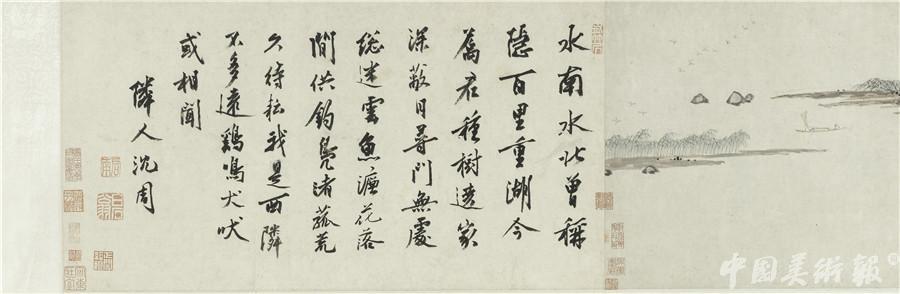 水南水北曾稱
隱百里重湖今
屬君種樹遶家
深蔽日尋門無處
總迷雲魚濂花落
閒供釣鳧渚菰荒
久待耘我是西隣
不多遠鷄鳴犬吠
或相聞
隣人沈周
中國美術報